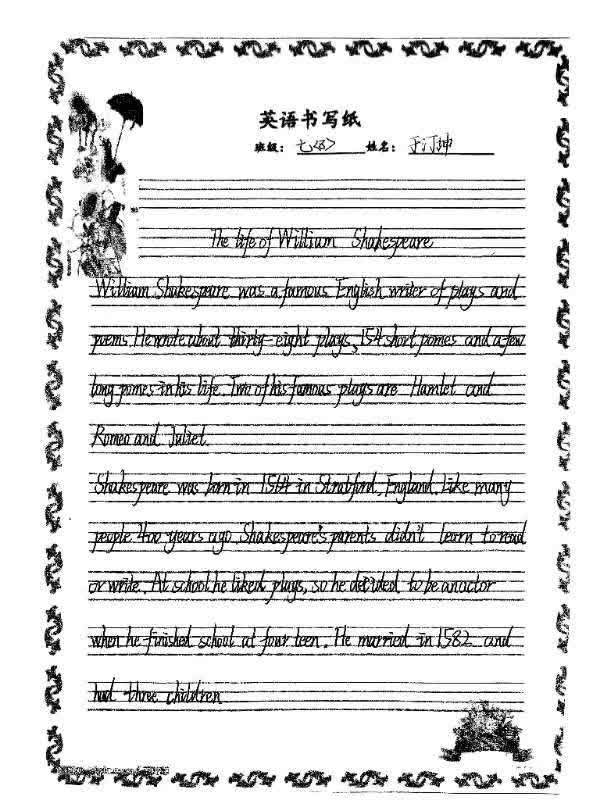 英语书写纸
班级： 七<8> 姓名： 于汀坤
The life of William Shakespeare
William Shakespeare was a famous English writer of plays and
poems. He wrote about thirty-eight plays, 154 short pomes and a few
long pomes in his life. Two of his famous plays are Hamlet and
Romeo and Juliet.
Shakespeare was born in 1564 in Stratford, England. Like many
people 400 years ago. Shakespeare's parents didn't learn to read
or write. At school he liked plays, so he decided to be an actor
when he finished school at four teen. He married in 1582 and
had three children